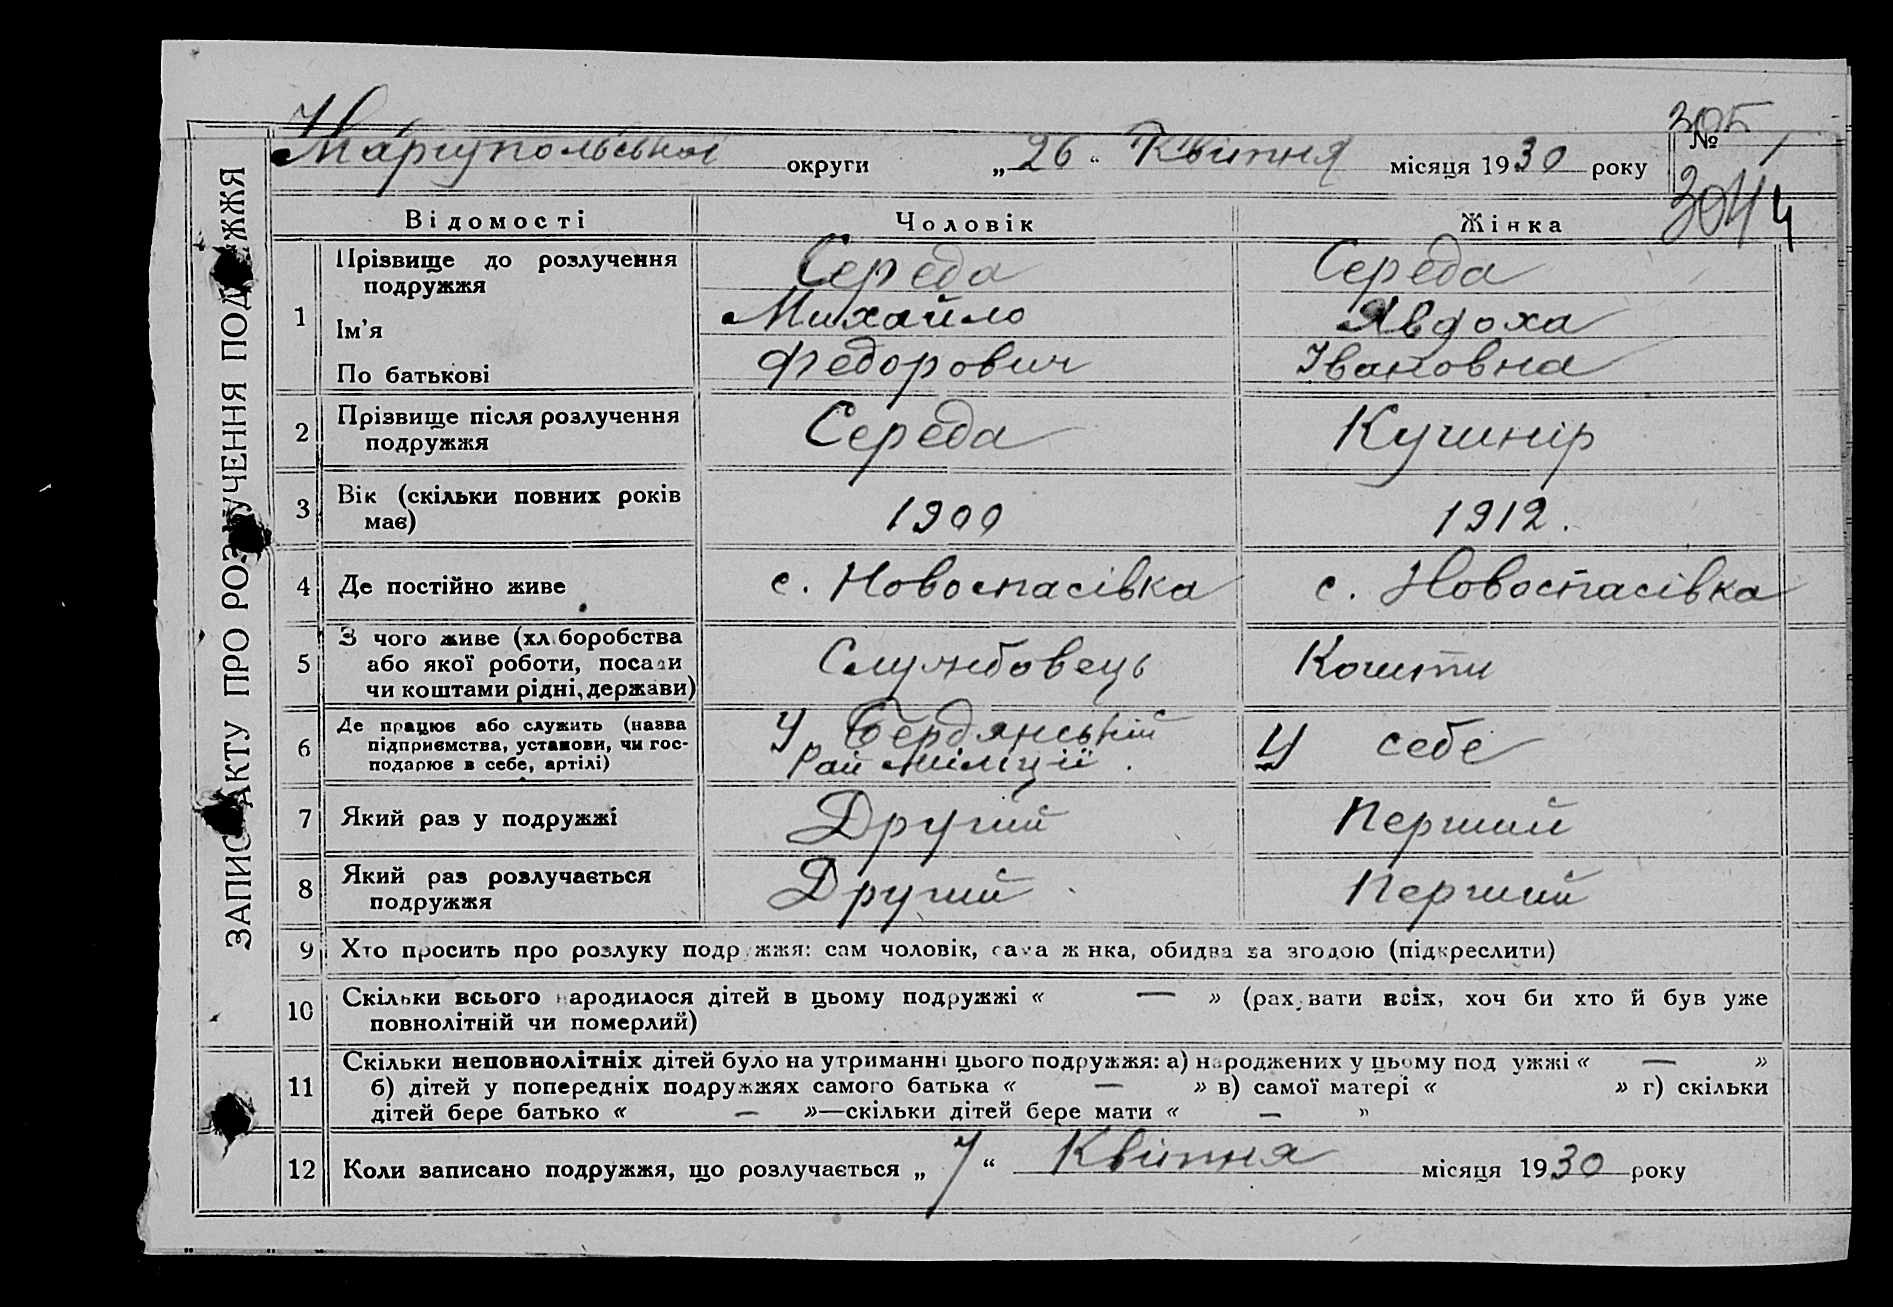 ЗАПИС АКТУ ПРО РОЗЛУЧЕННЯ ПОДРУЖЖЯ
305
Маріупольської округи „26“ Квітня місяця 1930 року №
304 4
Відомості Чоловік Жінка
1 Прізвище до розлучення подружжя Середа Середа
Ім'я Михайло Явдоха
По батькові Федорович Івановна
2 Прізвище після розлучення подружжя Середа Кушнір
3 Вік (скільки повних років має) 1900 1912.
4 Де постійно живе с. Новоспасівка с. Новоспасівка
5 З чого живе (хліборобства або якої роботи, посади чи коштами рідні, держави) Службовець Кошти
6 Де працює або служить (назва підприємства, установи, чи господарює в себе, артілі) У Бердянській Рай міліції. У себе
7 Який раз у подружжі Другий Перший
8 Який раз розлучається подружжя Другий Перший
9 Хто просить про розлуку подружжя: сам чоловік, сама жінка, обидва за згодою (підкреслити)
10 Скільки всього народилося дітей в цьому подружжі « — » (рахувати всіх, хоч би хто й був уже
повнолітній чи померлий)
11 Скільки неповнолітніх дітей було на утриманні цього подружжя: а) народжених у цьому подружжі « — »
б) дітей у попередніх подружжях самого батька « — » в) самої матері « » г) скільки
дітей бере батько « — »—скільки дітей бере мати « — »
12 Коли записано подружжя, що розлучається „7“ Квітня місяця 1930 року